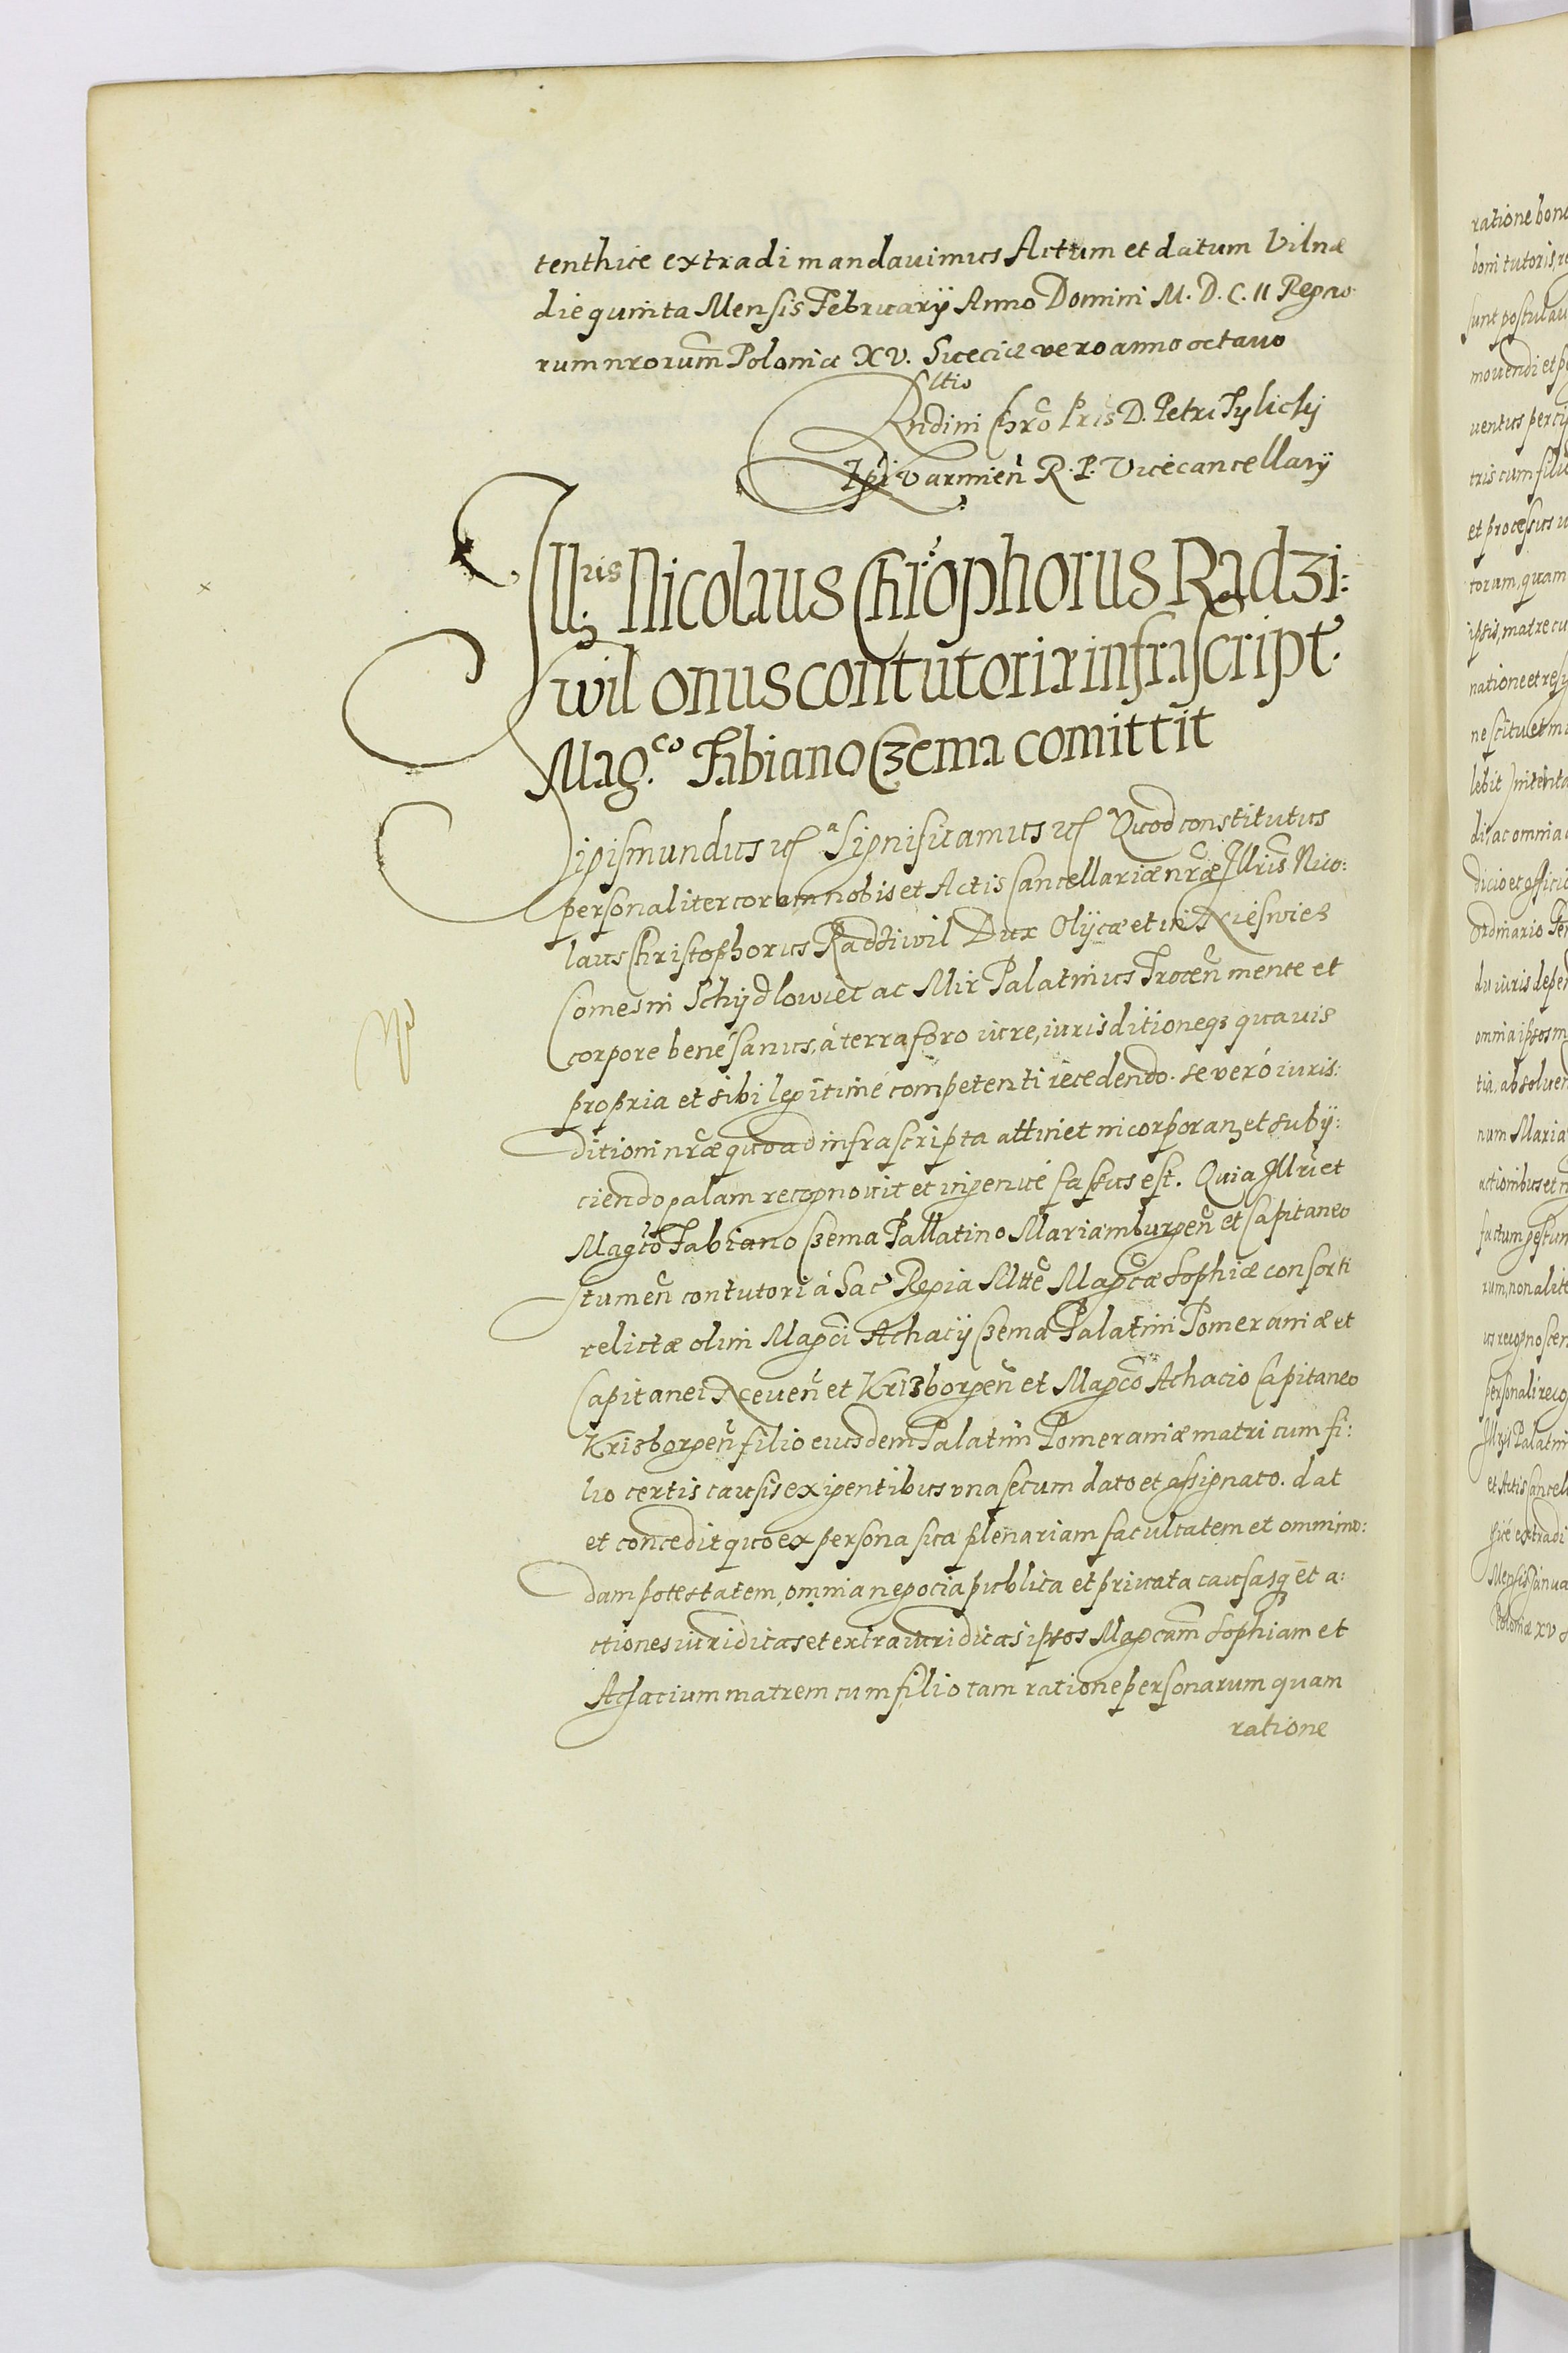 tenthice extradi mandauimus Actum et datum Vilnæ
die quinta Mensis Februarÿ Anno Domini M. D. C. II Regno
rum nrorum Poloniæ XV. Sueciæ vero anno octauo
Rltio
Rndini Chro Pris D. Petri Tylicky
Epi varmien R. P. Vicecancellarÿ
Illris Nicolaus Chrophorus Radzi:
wil onus contutoriæ infrascript.
Mag.co Fabiano Czema comittit
Sigismundus etc Significamus etc Quod constitutus
personaliter coram nobis et Actis Cancellariæ nræ Illris Nico:
laus Christophorus Radziwil Dux Olÿcæ et in Nieswiez
Comes in Schÿdlowiec ac Mir Palatinus Trocen mente et
corpore bené sanus, á terra foro iure, iurisditioneqz quauis
propria et sibi legitimé competenti recedendo. se veró iuris:
ditioni nræ quoad infrascripta attinet incorporanz et subÿ:
ciendo palam recognouit et ingenué fassus est. Quia Illri et
Magco Fabiano Czema Pallatino Mariamburgen et Capitaneo
Stumen contutori á Sac Regia Mtte Magcæ Sophiæ consorti
relictæ olim Magci Achacÿ Czema Palatini Pomeraniæ et
Capitanei Neuen et Krizborgen et Magco Achacio Capitaneo
Krisborgen filio eiusdem Palatini Pomeraniæ matri cum fi:
lio certis causis exigentibus vna secum dato et assignato. dat
et concedit quo ex persona sua plenariam facultatem et omnimo:
dam potestatem, omnia negocia publica et priuata causasqz et a:
ctiones iuridicas et extraiuridicas ipsos Magcam Sophiam et
Achacium matrem cum filio tam ratione personarum quam
ratione